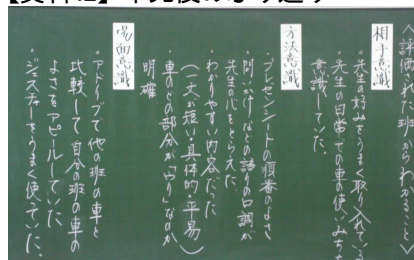 〈評価された班からわかること〉
相手意識
・先生の好みをうまく取り入れている
・先生の日常での車の使いみちを
意識していた。
方法意識
・プレゼンシートの順番のよさ
・問いかけなどの語りの口調が
先生の心をとらえた
・わかりやすい内容だった
(一文が短い・具体的・平易)
・車のどの部分が「ウリ」なのか
明確
場面意識
・アドリブで他の班の車と
比較して自分の班の車の
よさをアピールしていた
・ジェスチャーをうまく使っていた。